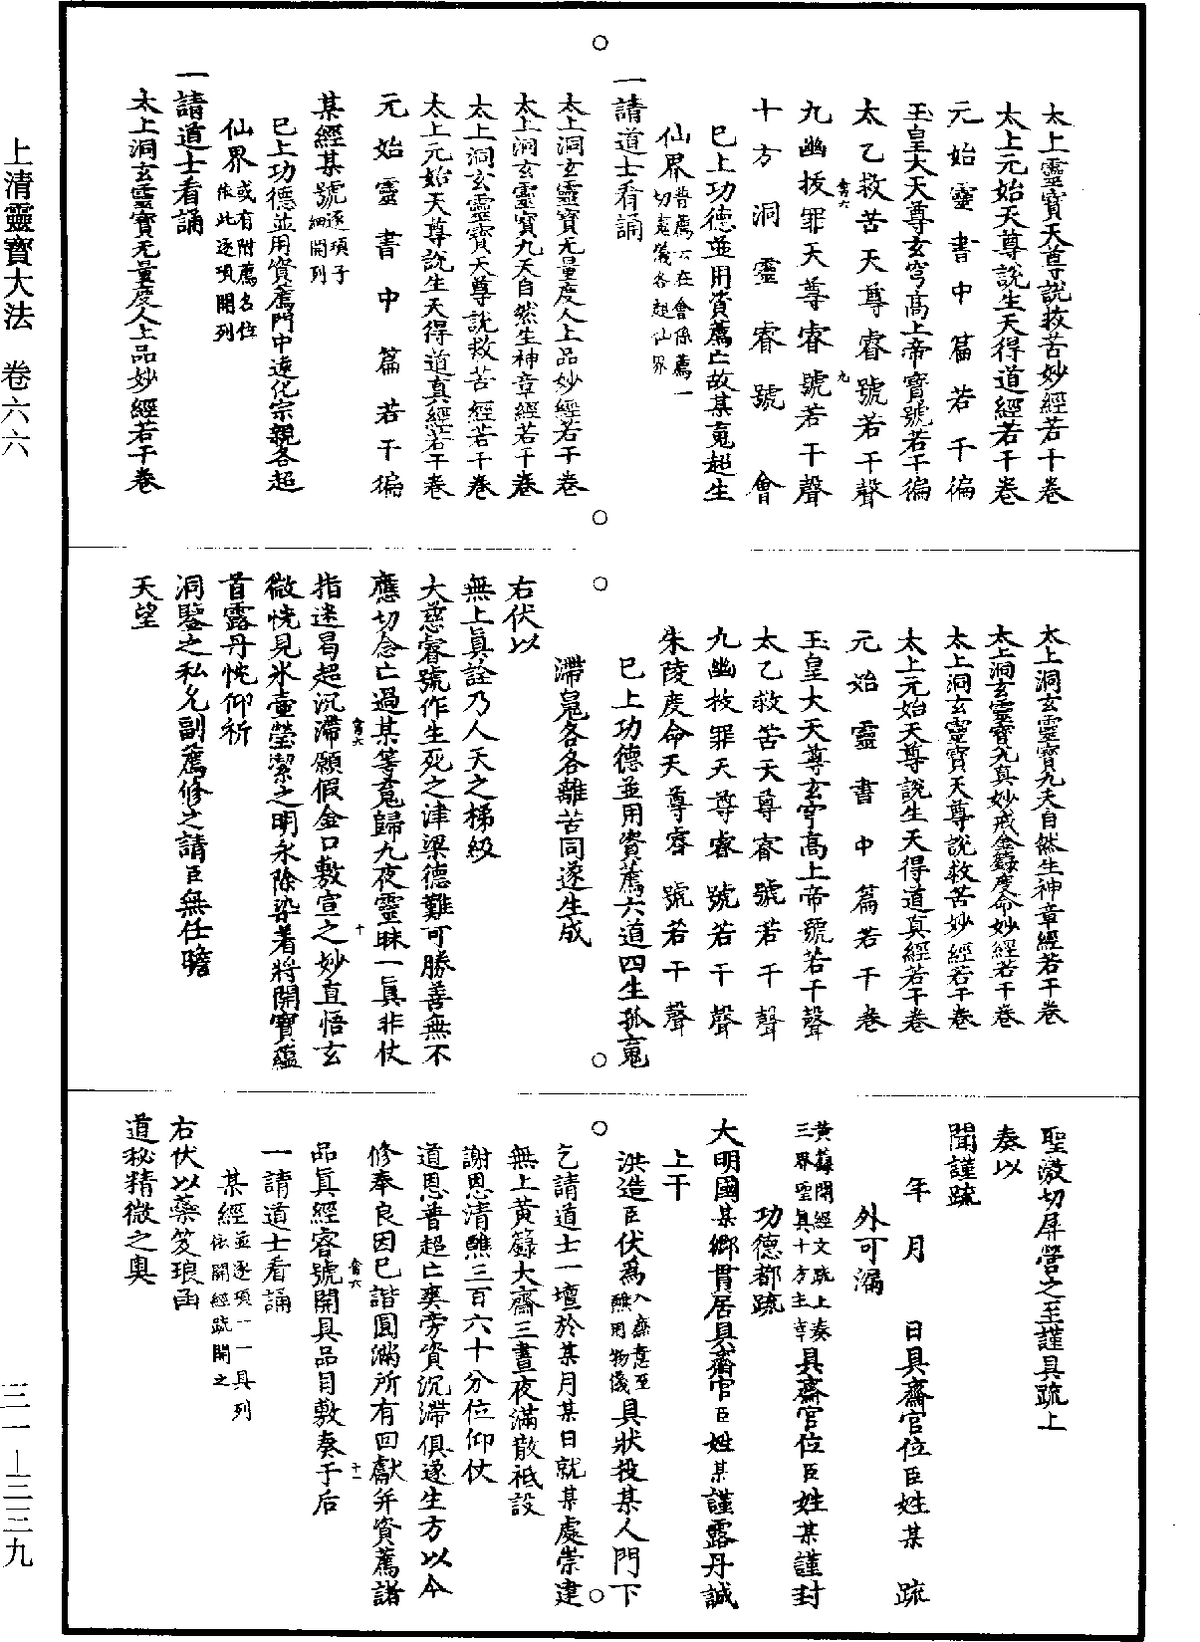 太上靈寶天尊說救苦妙經若干卷
太上元始天尊說生天得道經若干卷
元始靈書中篇若干徧
玉皇大天尊玄穹高上帝寶號若干徧
太乙救苦天尊睿號若干聲
九幽拔罪天尊睿號若干聲
十方洞靈睿號 會
巳上功德並用資薦亡故某䰟超生
仙界普薦云在會係薦一切意儀各超仙界
一請道士看誦
太上洞玄靈寶无量度人上品妙經若干卷
太上洞玄靈寶九天自然生神章經若干卷
太上洞玄靈寶天尊說救苦經若干卷
太上元始天尊說生天得道真經若干卷
元始靈書中篇若干徧
某經某號逐項子細開列
巳上功德並用資薦門中遠化宗親各超
仙界或有附薦名位依此逐項開列
一請道士看誦
太上洞玄靈寶无量度人上品妙經若干卷
太上洞玄靈寶九天自然生神章經若干卷
太上洞玄靈寶九真妙戒金籙度命妙經若干卷
太上洞玄靈寶天尊說救苦妙經若干卷
太上元始天尊說生天得道真經若干卷
元始靈書中篇若干卷
玉皇大天尊玄穹高上帝號若干聲
太乙救苦天尊睿號若干聲
九幽拔罪天尊睿號若干聲
朱陵度命天尊睿號若干聲
巳上功德並用資薦六道四生孤䰟
滯䰟各各離苦同遂生成
右伏以
無上眞詮乃人天之梯級
大慈睿號作生死之津梁德難可勝善無不
應切念亡過某等䰟歸九夜靈昧一眞非仗
指迷曷超沉滯願假金口敷宣之妙直悟玄
微恍見氷壷瑩潔之明永除染著將開寶蘊
首露丹忱仰祈
洞鑒之私允副薦修之請臣無任瞻
天望
聖激切屏營之至謹具疏上
奏以
聞謹疏
年 月 日具齋官位臣姓某 疏
外可漏
黃籙開經文疏上奏三界聖眞十方主宰具齋官位臣姓某謹封
功德都疏
大明國某鄉貫居具齋官臣姓某謹露丹誠
上干
洪造臣伏爲入齋意至醮用物儀具狀投某人門下
乞請道士一壇於某月某日就某處崇建
無上黃籙大齋三晝夜滿散祗設
謝恩清醮三百六十分位仰仗
道恩普超亡爽旁資沉滯俱遂生方以今
修奉良因巳諧圓滿所有回獻并資薦諸
品眞經睿號開具品目敷奏于后
一請道士看誦
某經並逐項一一具列依開經疏開之
右伏以藥笈琅函
道秘精微之奥
上清靈寶大法 卷六六
三一—三三九